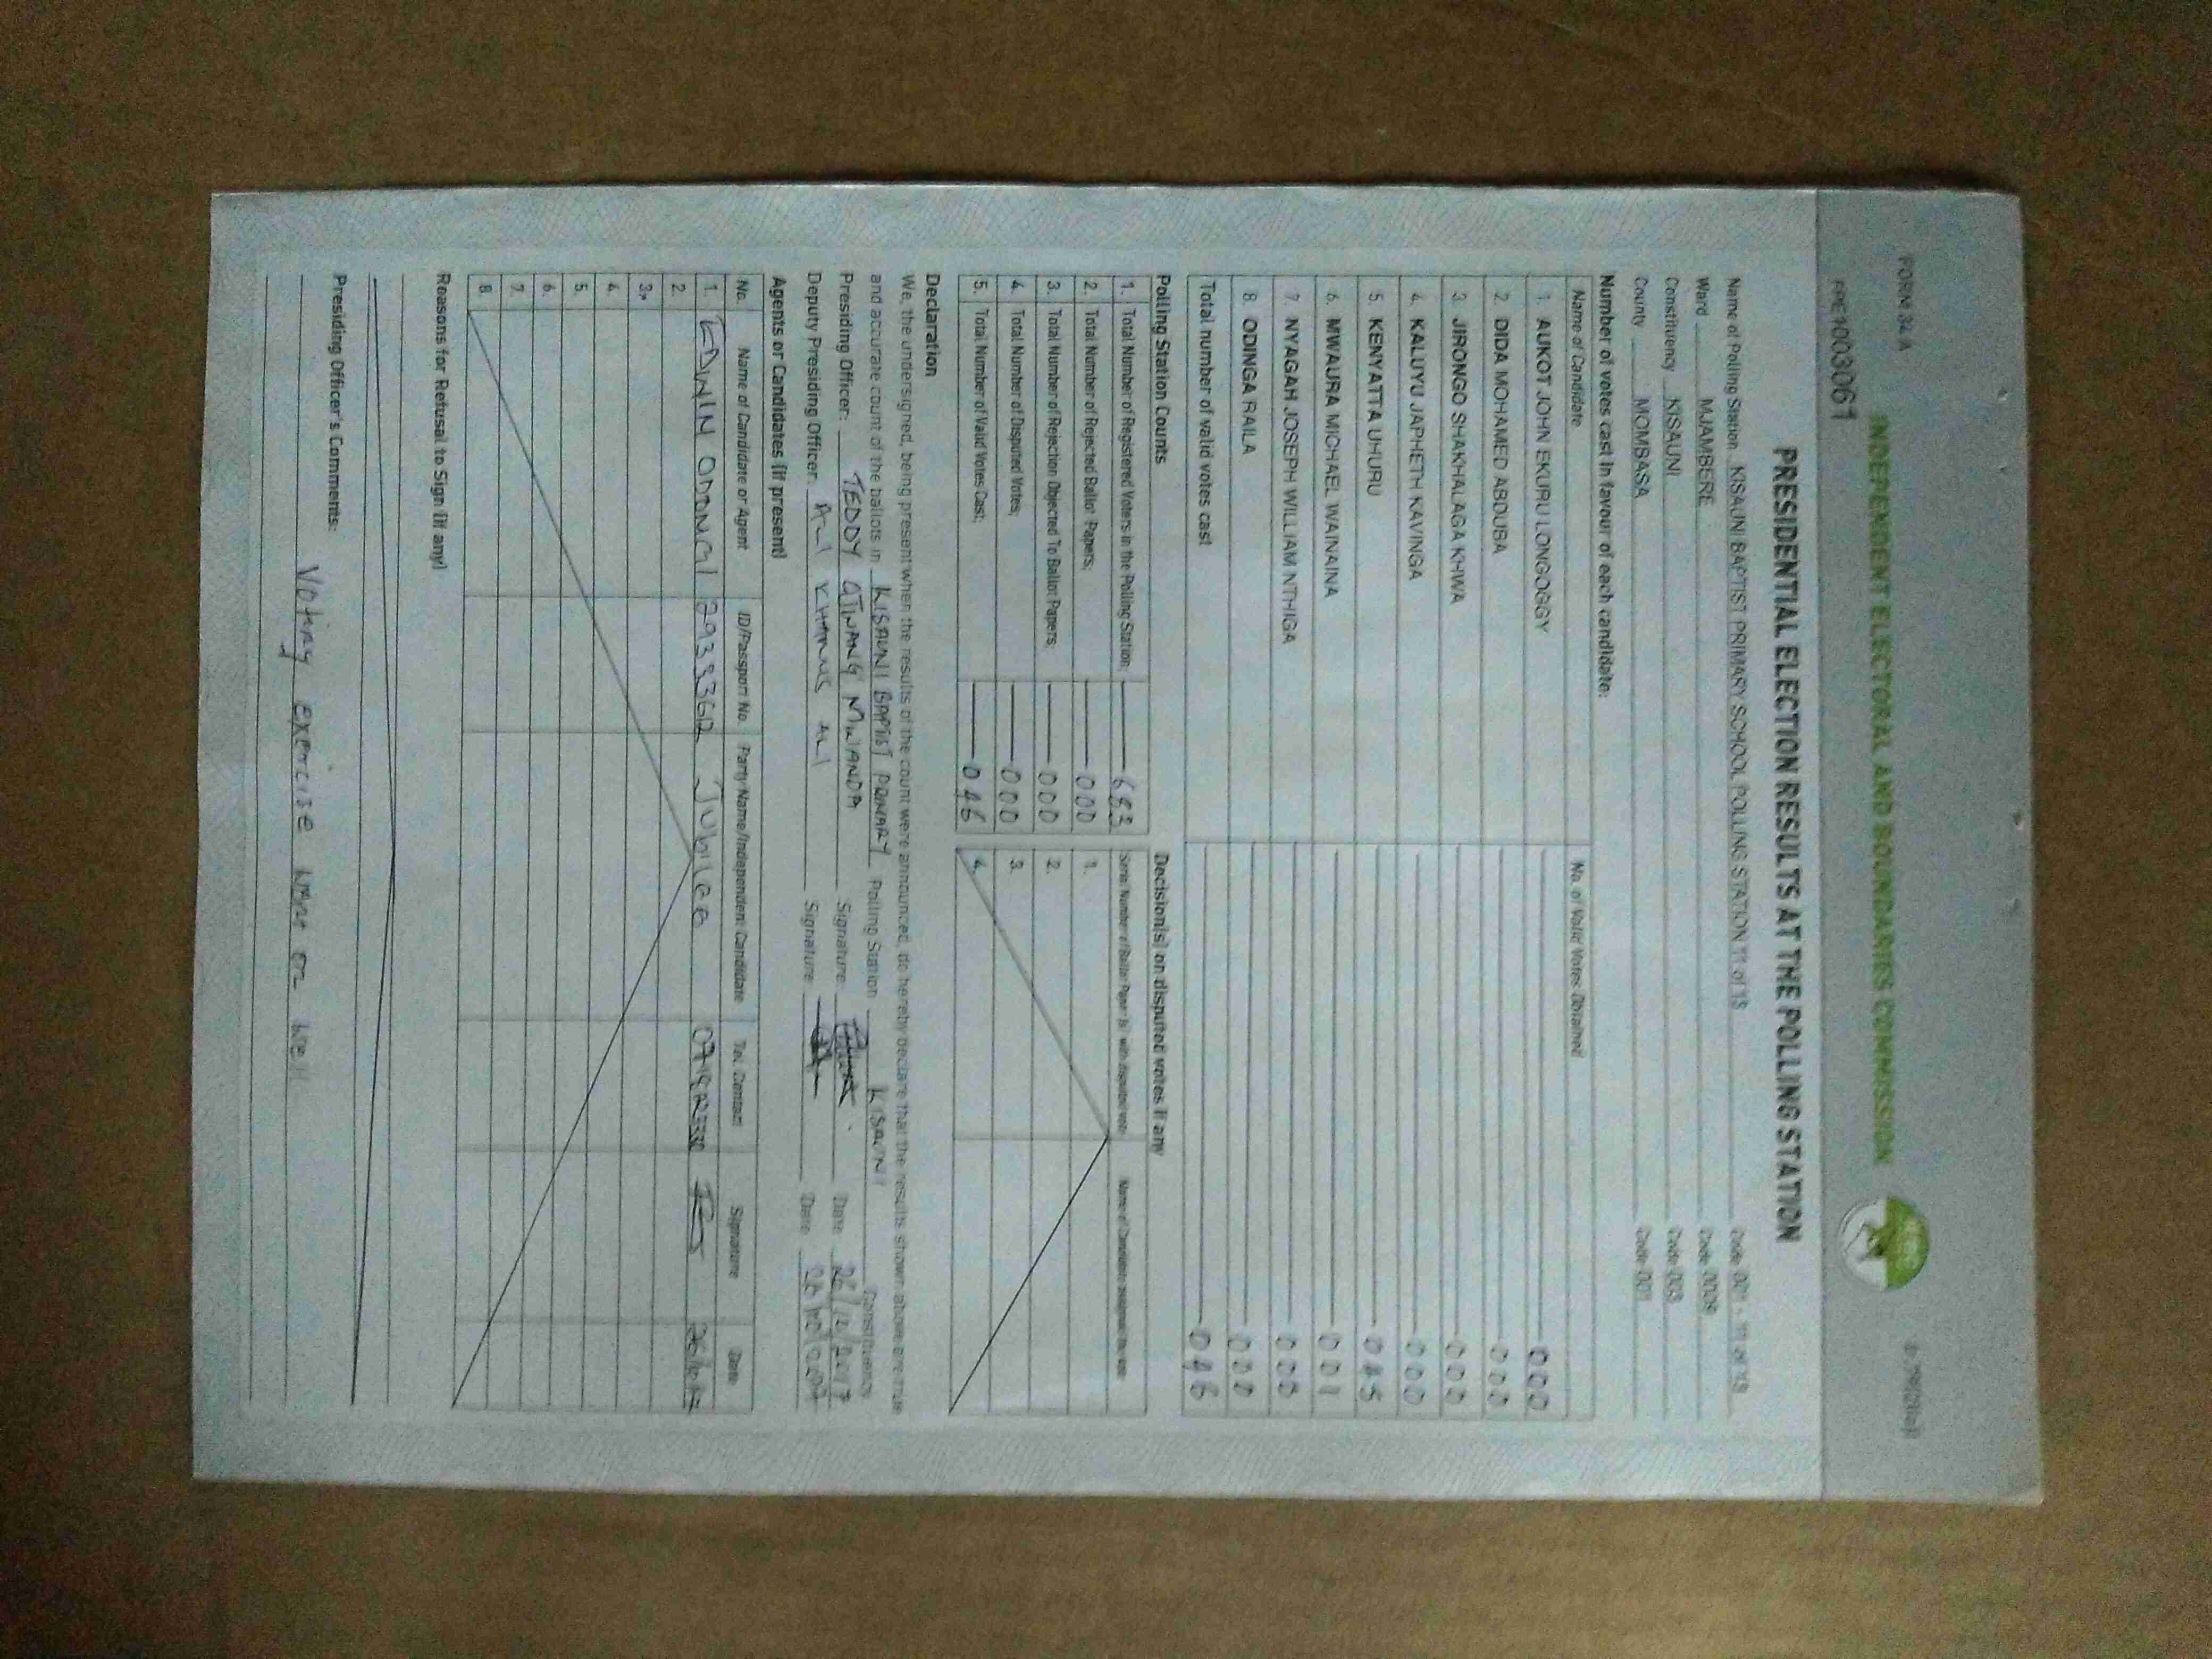 FORM 34A
INDEPENDENT ELECTORAL AND BOUNDARIES COMMISSION
PPE1003061
PRESIDENTIAL ELECTION RESULTS AT THE POLLING STATION
Name of Polling Station KISAUNI BAPTIST PRIMARY SCHOOL POLLING STATION 11 of 13 Code 021 - 11 of 13
Ward MJAMBERE Code 0009
Constituency KISAUNI Code 003
County MOMBASA Code 001
Number of votes cast in favour of each candidate:
Name of Candidate No. of Valid Votes Obtained
1. AUKOT JOHN EKURU LONGOGGY 000
2. DIDA MOHAMED ABDUBA 000
3. JIRONGO SHAKHALAGA KHWA 000
4. KALUYU JAPHETH KAVINGA 000
5. KENYATTA UHURU 045
6. MWAURA MICHAEL WAINAINA 001
7. NYAGAH JOSEPH WILLIAM NTHIGA 000
8. ODINGA RAILA 000
Total number of valid votes cast 046
Polling Station Counts
1. Total Number of Registered Voters in the Polling Station; 683
2. Total Number of Rejected Ballot Papers; 000
3. Total Number of Rejection Objected To Ballot Papers; 000
4. Total Number of Disputed Votes; 000
5. Total Number of Valid Votes Cast; 046
Decision(s) on disputed votes if any
Serial Number of Ballot Paper (s) with disputed vote Name of Candidate assigned the vote
1.
2.
3.
4.
Declaration
We, the undersigned, being present when the results of the count were announced, do hereby declare that the results shown above are true
and accurate count of the ballots in KISAUNI BAPTIST PRIMARY Polling Station KISAUNI Constituency
Presiding Officer: TEDDY Signature Date 26/10/2017
Deputy Presiding Officer: ALI KHAMIS ALI Signature Date
Agents or Candidates (if present)
No. Name of Candidate or Agent ID/Passport No. Party Name/Independent Candidate Tel. Contact Signature Date
1. EDWIN ODONGI Jubilee
2.
3.
4.
5.
6.
7.
8.
Reasons for Refusal to Sign (if any)
Presiding Officer's Comments:
Voting exercise went on well